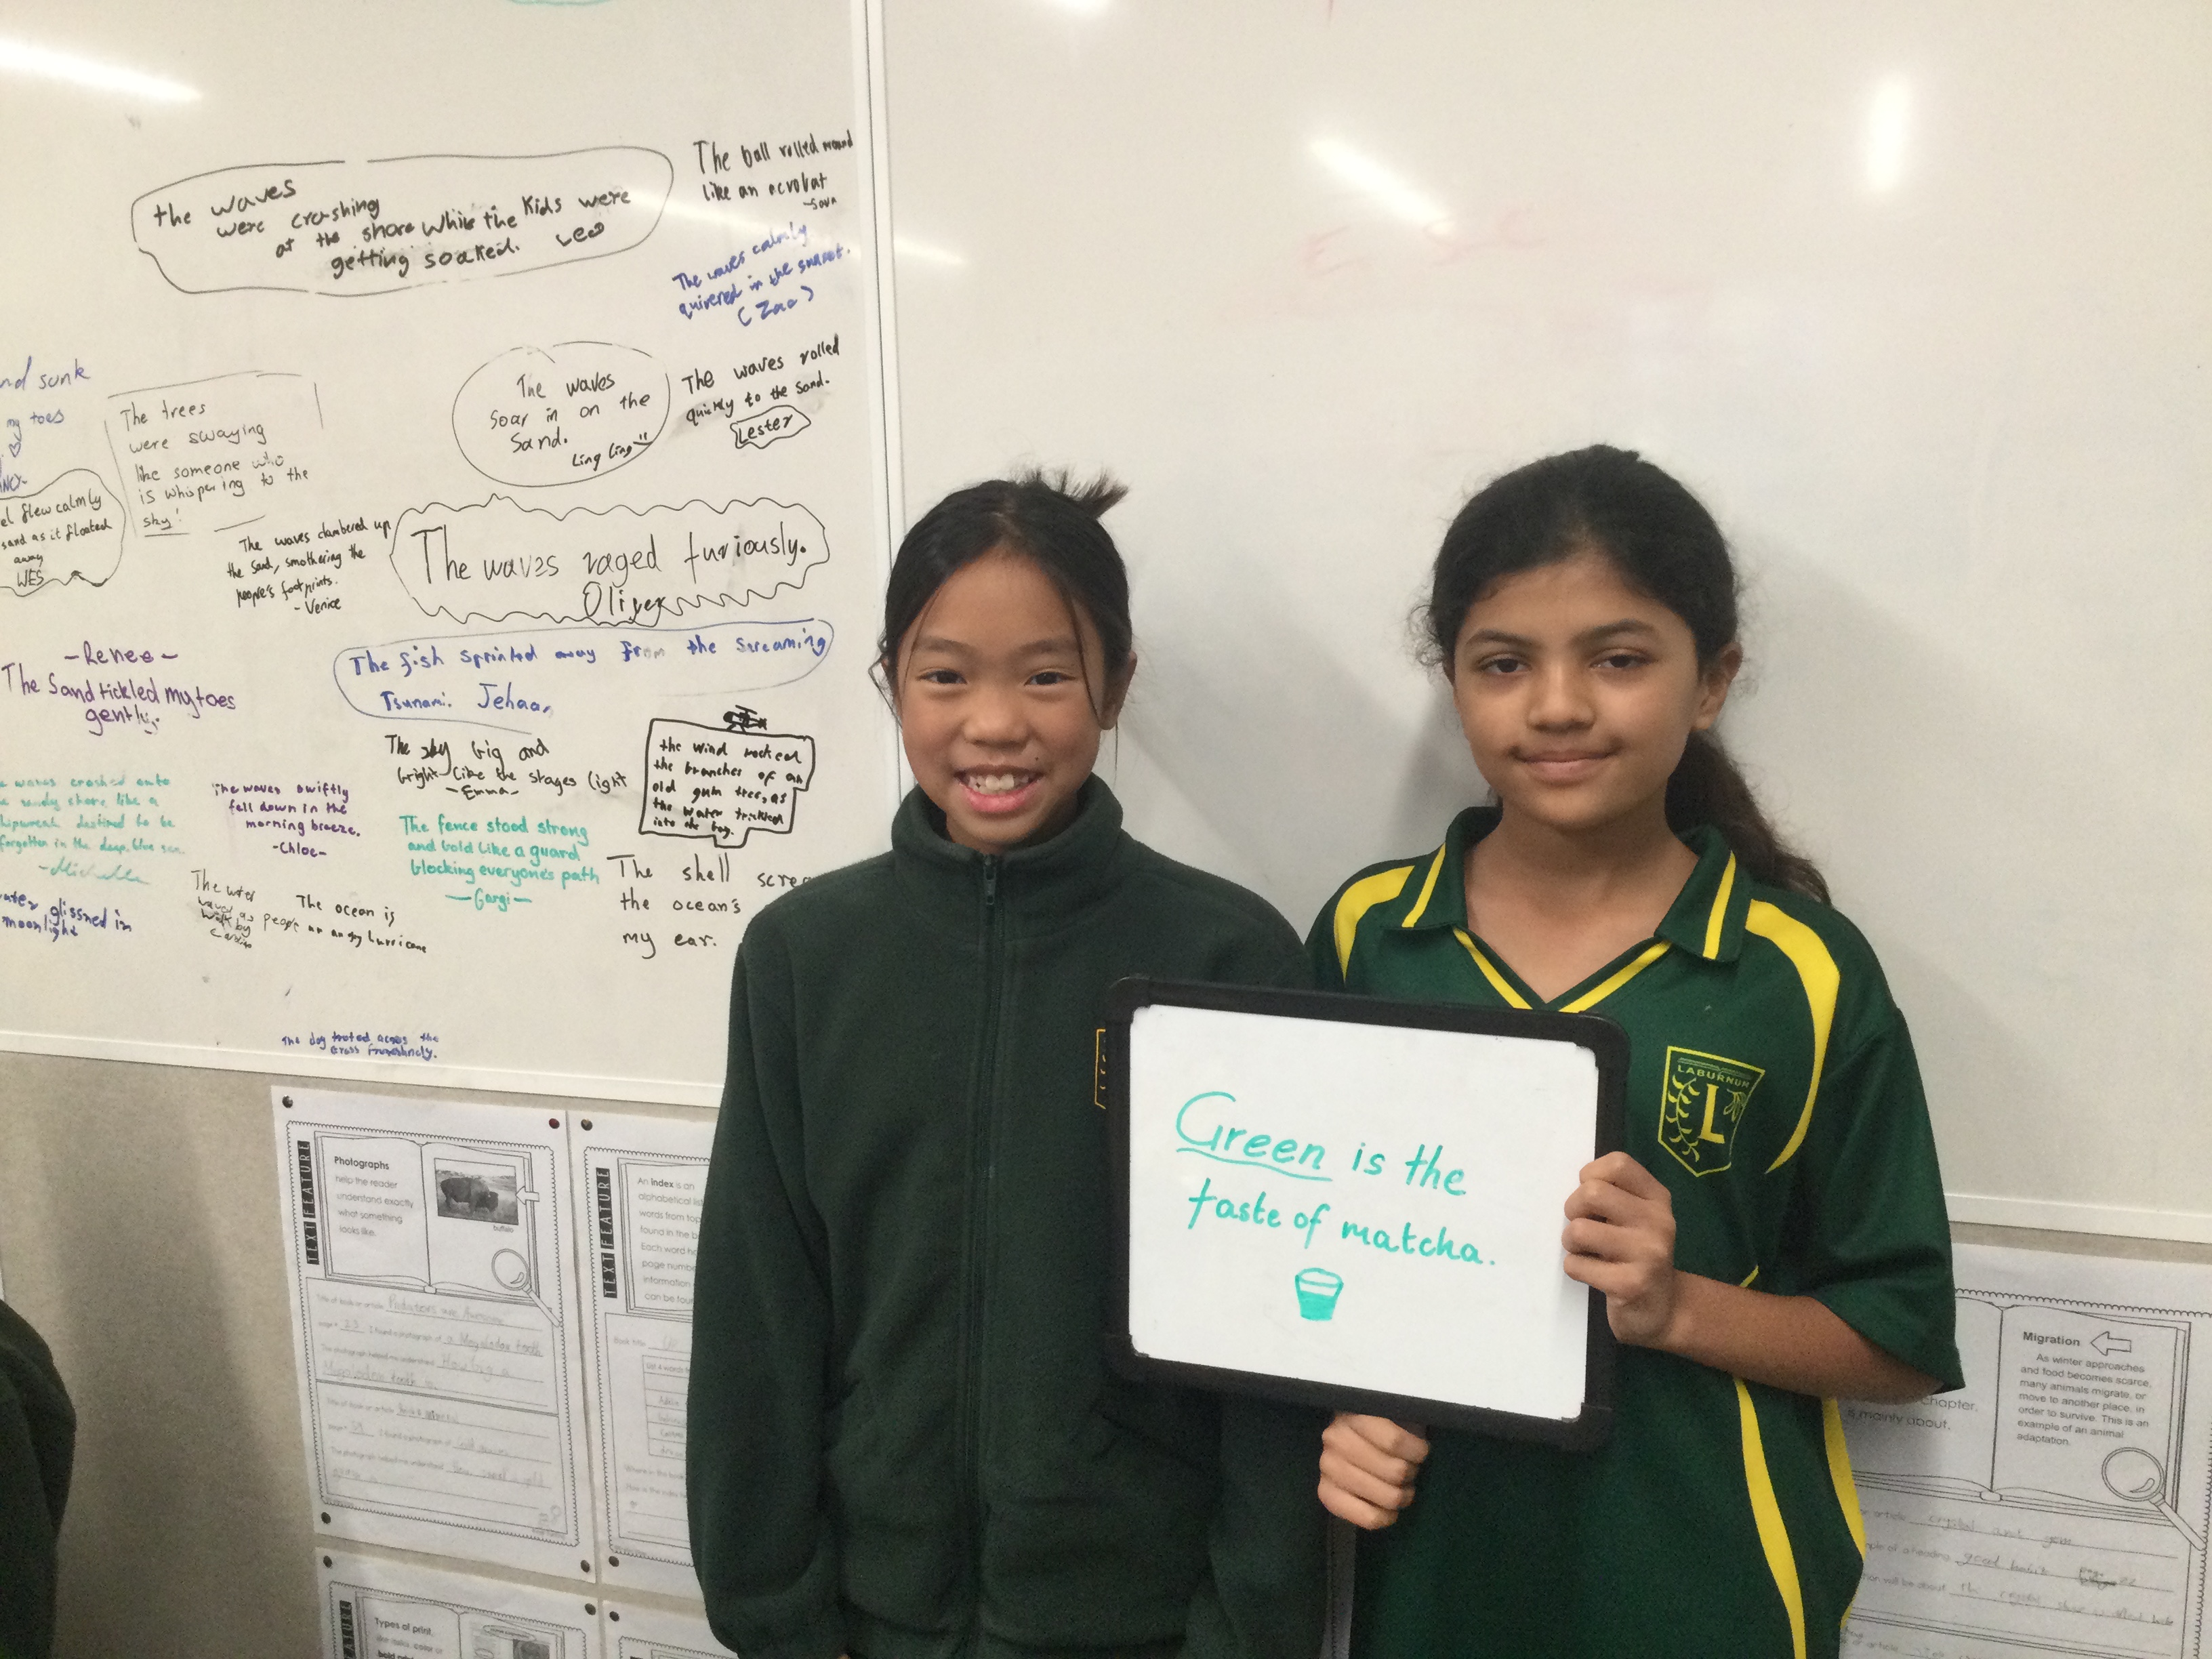 the waves
were crashing
at the shore while the kids were
getting soaked. Leo
The ball rolled around
like an acrobat
The waves calmly
quivered in the sunset.
(Zac)
The waves
soar in on the
sand.
Ling Ling
The waves rolled
quickly to the sand.
Lester
nd sunk
my toes
The trees
were swaying
like someone who
is whispering to the
sky!
el flew calmly
sand as it floated
away
WES
The waves clambered up
the sand, smothering the
people's footprints.
- Venice
The waves raged furiously.
Oliver
- Renee -
The Sand tickled my toes
gently.
The fish sprinted away from the screaming
Tsunami. Jehaan
The sky big and
bright like the stages light
- Emma -
the wind rocked
the branches of an
old gum tree, as
the water trickled
into the bay.
waves crashed onto
sandy shore, like a
shipwreck destined to be
forgotten in the deep, blue sea.
- Michelle
The waves swiftly
fell down in the
morning breeze.
- Chloe -
The fence stood strong
and bold like a guard
blocking everyone's path
- Gargi -
The shell screa
the ocean's
my ear.
ater glissned in
moonlight
The water
The ocean is
an angry hurricane
The dog troted across the
Green is the
taste of matcha.
LABURNUM
L
TEXT FEATURE
Photographs
help the reader
understand exactly
what something
looks like.
buffalo
Title of book or article Predators are Awesome
page # 23 I found a photograph of a Megalodon tooth
The photograph helped me understand How big a
Megalodon tooth is.
Title of book or article
page # I found a photograph of
The photograph helped me understand
TEXT FEATURE
An index is an
alphabetical lis
words from top
found in the b
Each word ha
page numbe
information
can be foun
Book title
Types of print
Migration
As winter approaches
and food becomes scarce,
many animals migrate, or
move to another place, in
order to survive. This is an
example of an animal
adaptation.
chapter.
s mainly about.
or article crystal and gem